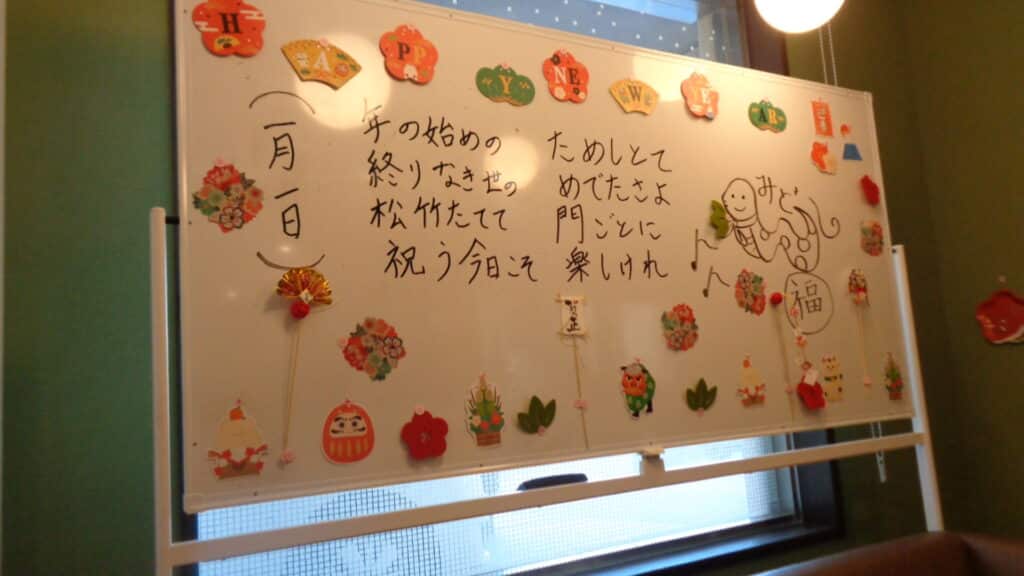 HAPPY NEW YEAR
(一月一日)
年の始めの ためしとて
終りなき世の めでたさよ
松竹たてて 門ごとに
祝う今日こそ 楽しけれ
福